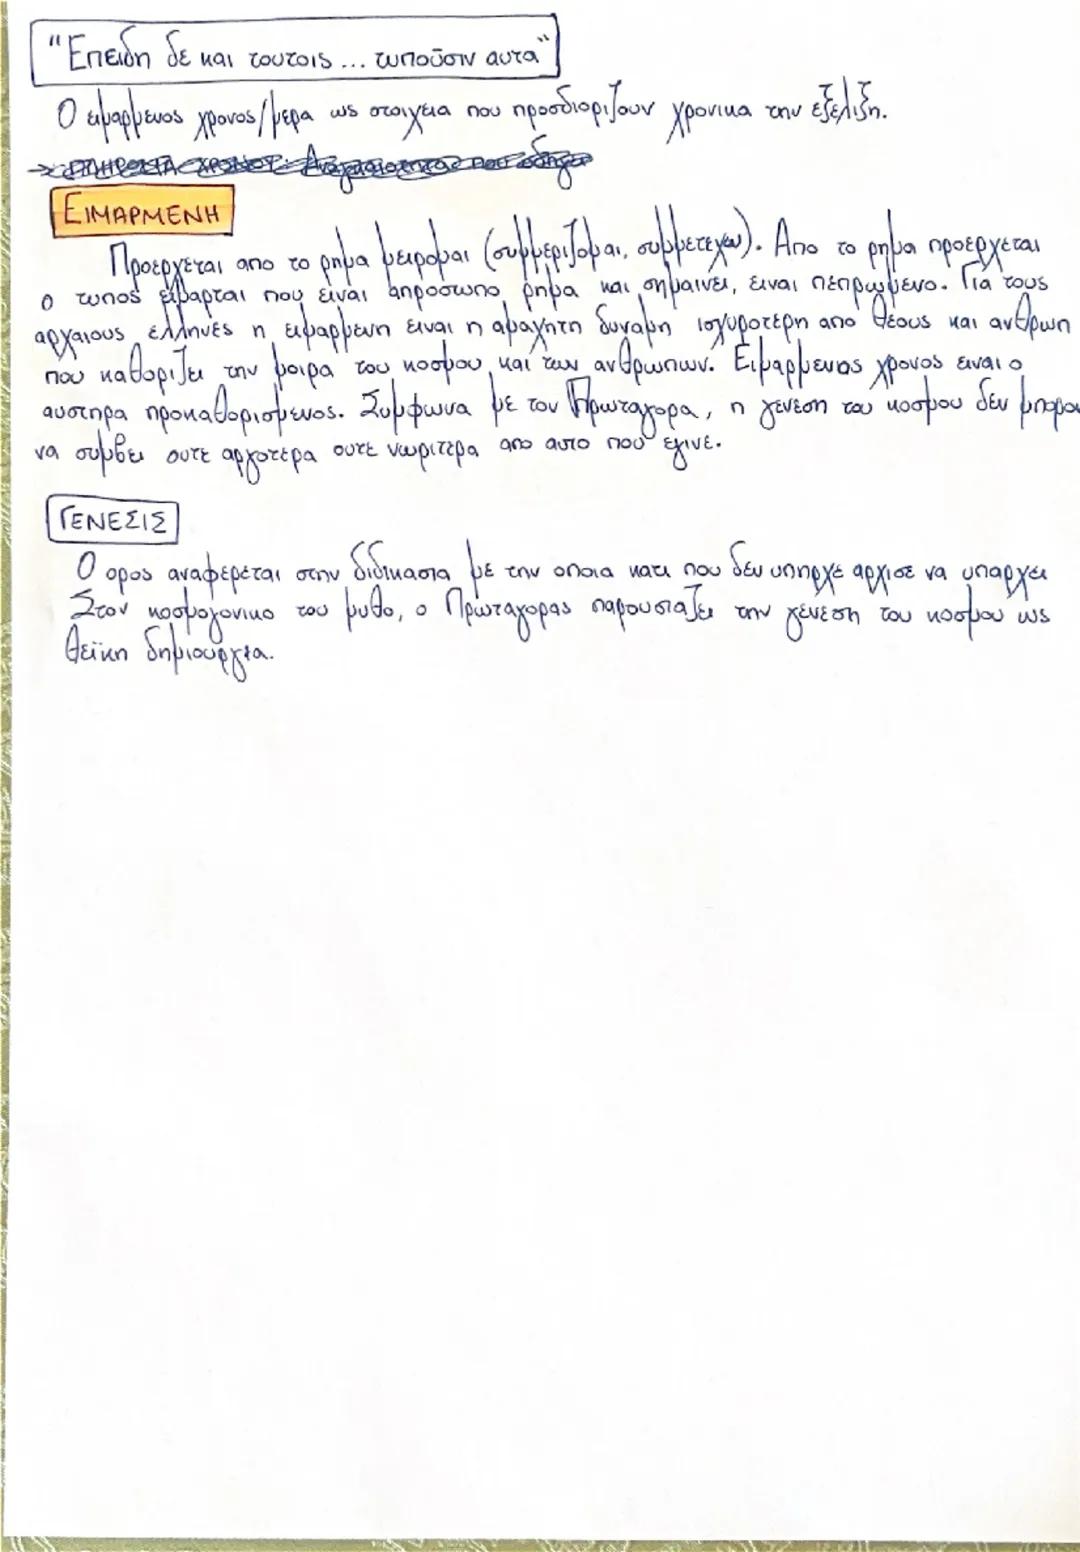 "Επειδη δε και τουτοις ... τυπούσιν αυτα"
Ο ειμαρμενος χρονος/μερα ως στοιχεια που προσδιοριζουν χρονικα την εξελιξη.
ΕΙΜΑΡΜΕΝΗ
Προερχεται απο το ρημα μειρομαι (συμμεριζομαι, συμμετεχω). Απο το ρημα προερχεται
ο τυπος είμαρται που ειναι απροσωπο ρημα και σημαινει, ειναι πεπρωμενο. Για τους
αρχαιους ελληνες η ειμαρμενη ειναι η αμαχητη δυναμη ισχυροτερη απο θεους και ανθρωπ
που καθοριζει την μοιρα του κοσμου και των ανθρωπων. Ειμαρμενος χρονος ειναι ο
αυστηρα προκαθορισμενος. Συμφωνα με τον Πρωταγορα, η γενεση του κοσμου δεν μπορου
να συμβει ουτε αργοτερα ουτε νωριτερα απο αυτο που εγινε.
ΓΕΝΕΣΙΣ
Ο ορος αναφερεται στην διδικασια με την οποια κατι που δεν υπηρχε αρχισε να υπαρχει
Στον κοσμογονικο του μυθο, ο Πρωταγορας παρουσιαζει την γενεση του κοσμου ως
θεϊκη δημιουργια.